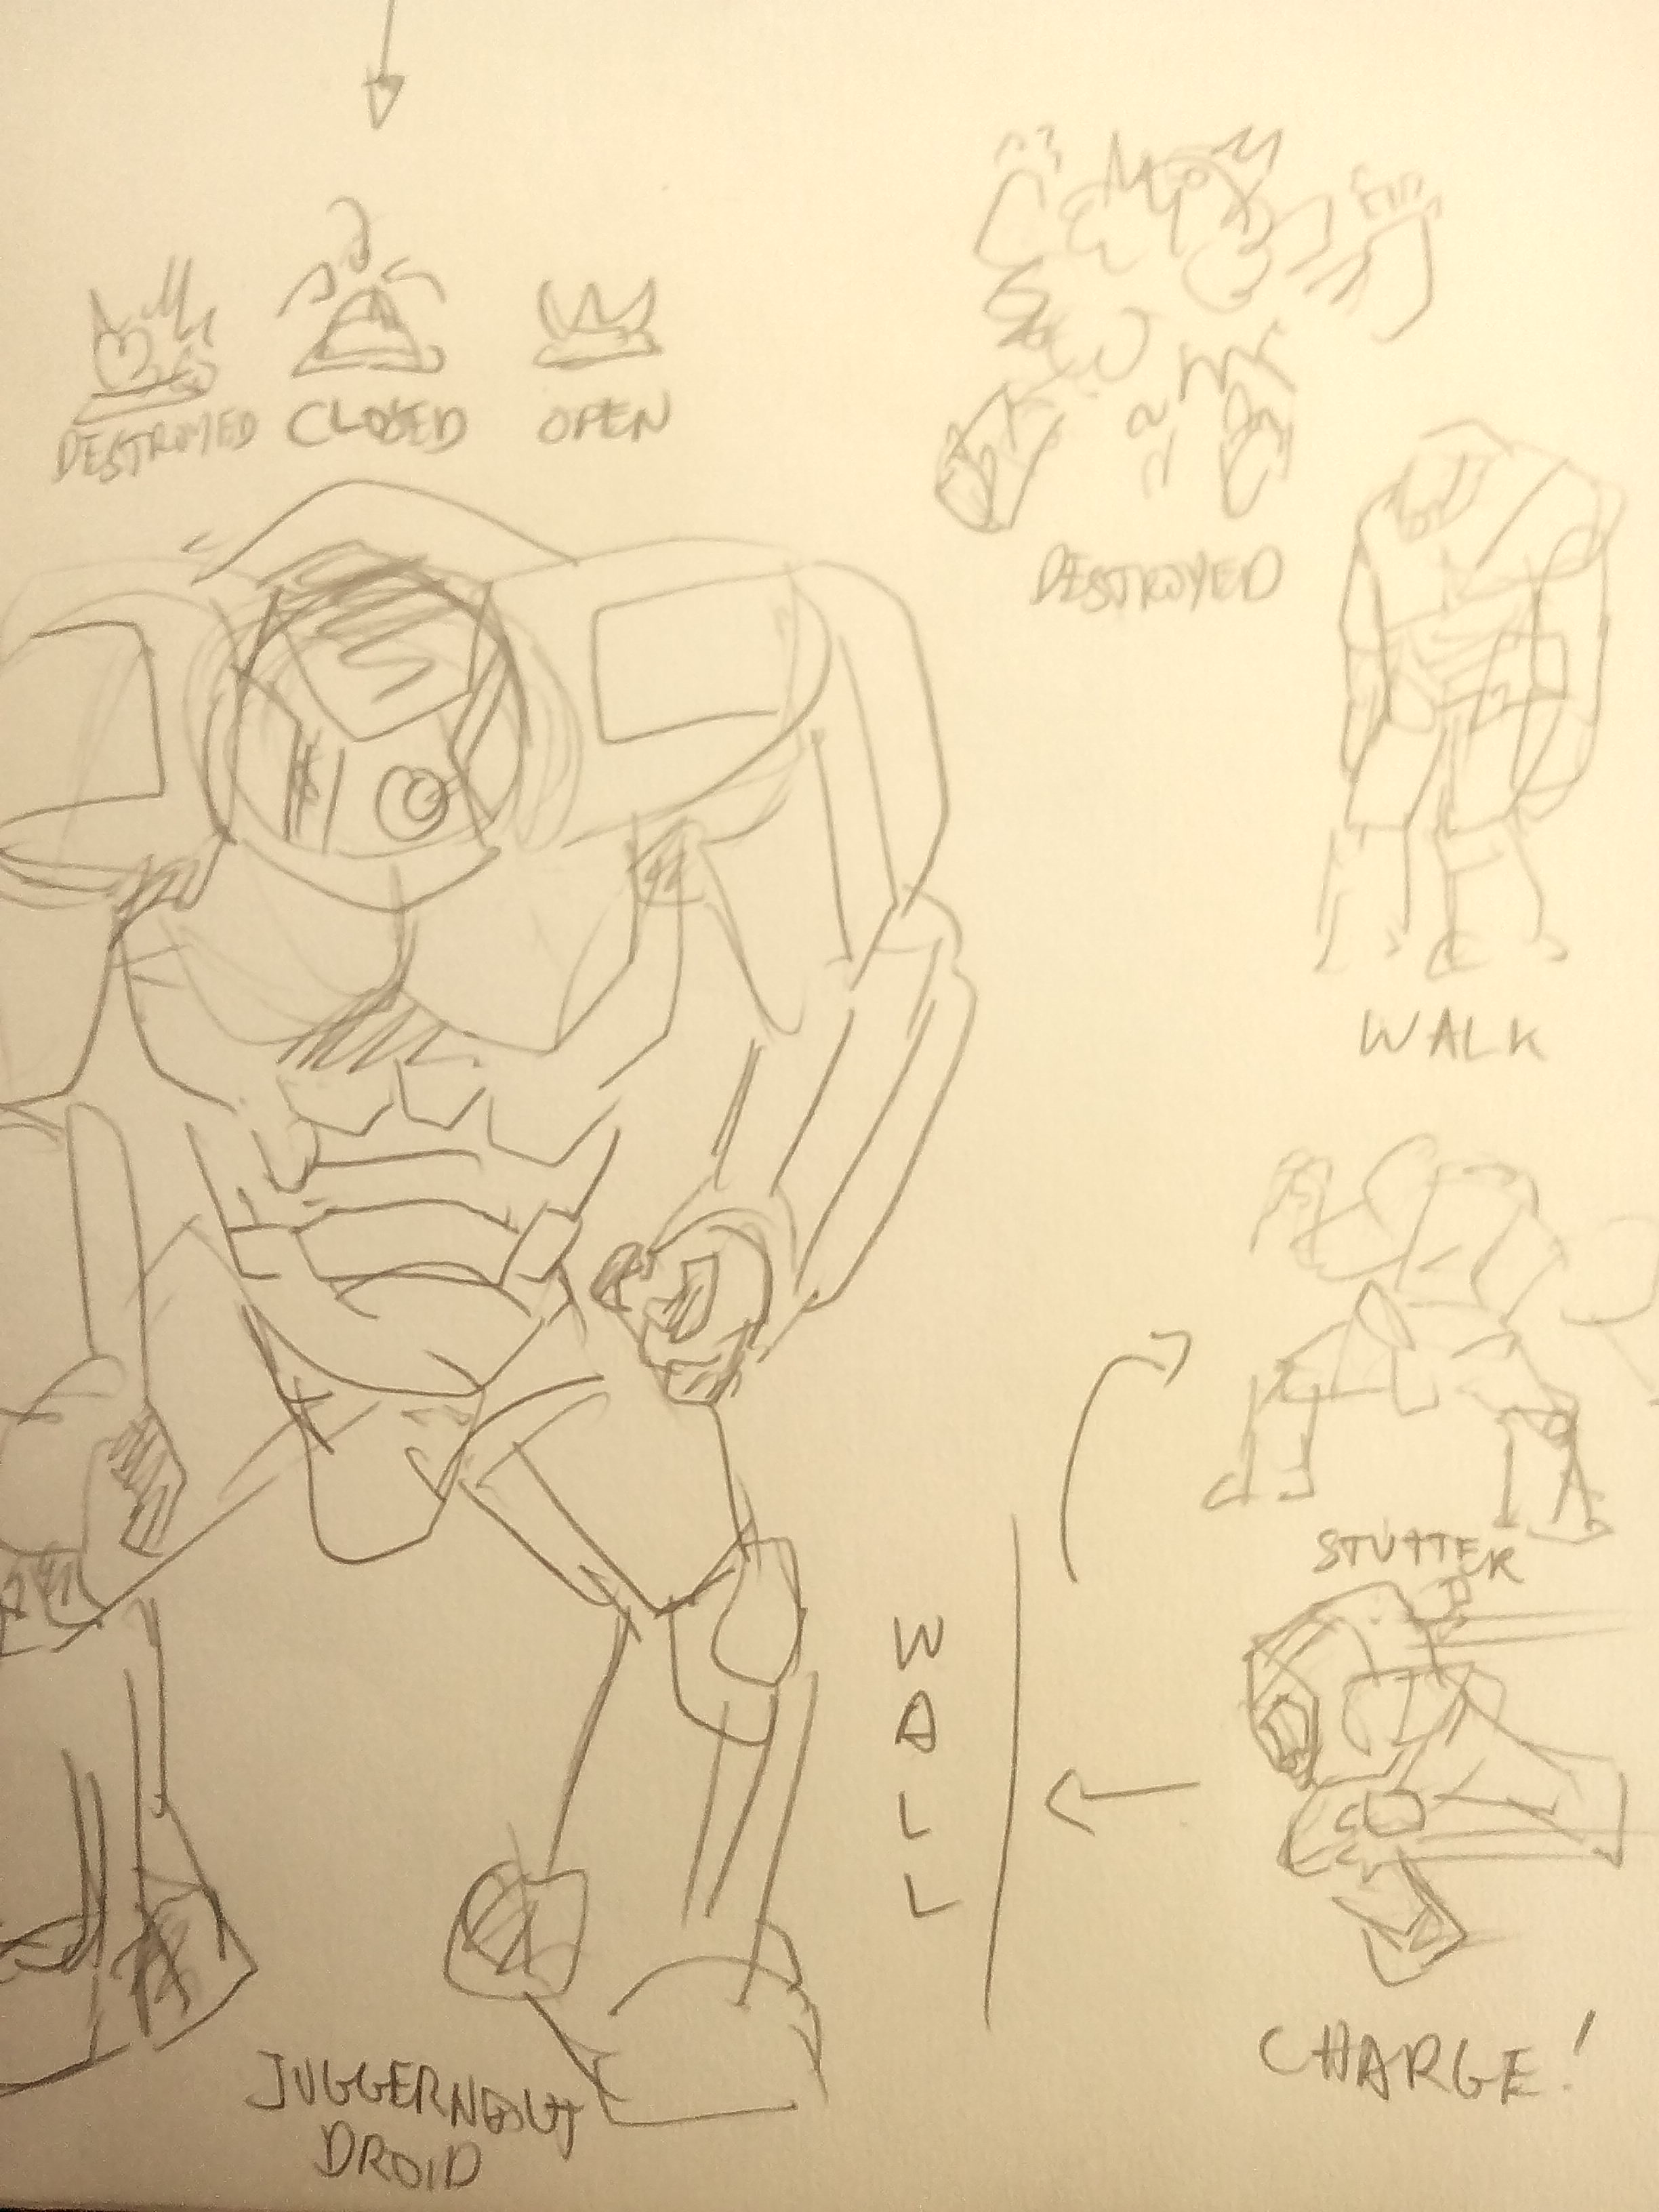 DESTROYED CLOSED OPEN
DESTROYED
WALK
STUTTER
WALL
CHARGE!
JUGGERNOUT
DROID